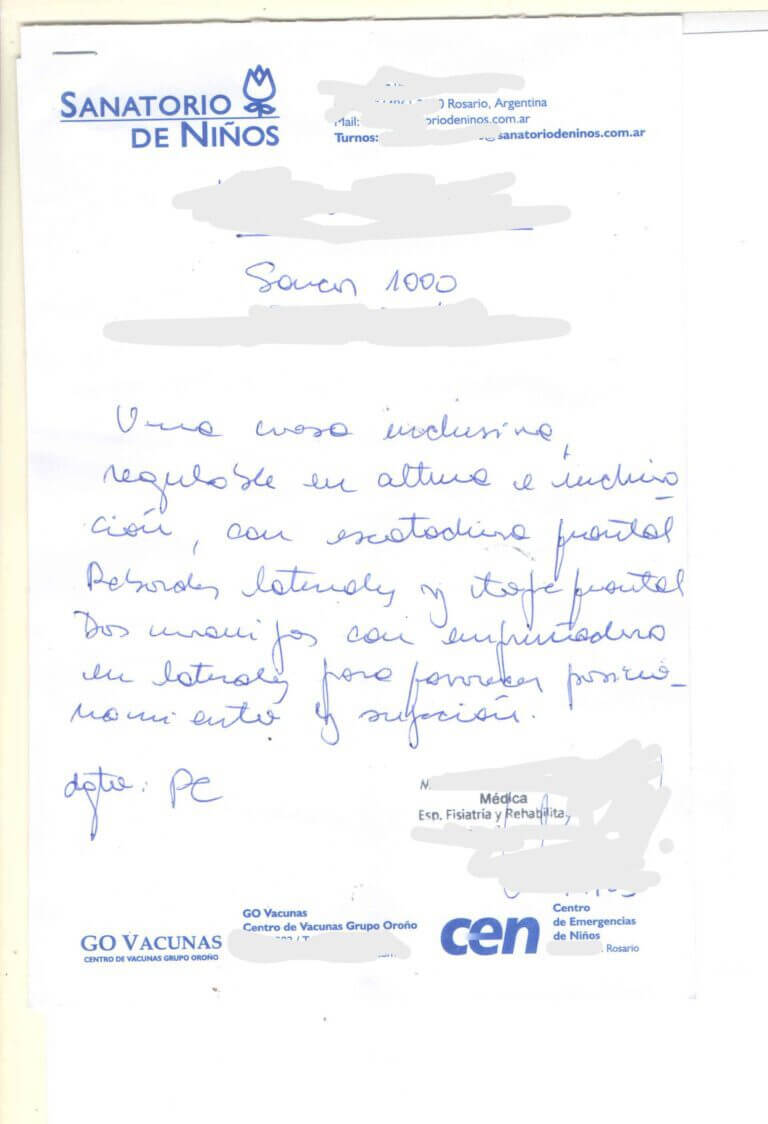 SANATORIO
DE NIÑOS
Rosario, Argentina
Mail: oriodeninos.com.ar
Turnos: @sanatoriodeninos.com.ar
1000
Una mesa inclusiva,
regulable en altura e inclina
ción, con escotadura frontal
Rebordes laterales y frontal
Dos manijas con empuñadura
en laterales para favorecer posicio_
namiento y sujeción.
dgto: PC
Médica
Esp. Fisiatria y Rehabilita
GO VACUNAS
CENTRO DE VACUNAS GRUPO OROÑO
GO Vacunas
Centro de Vacunas Grupo Oroño
cen
Centro
de Emergencias
de Niños
Rosario